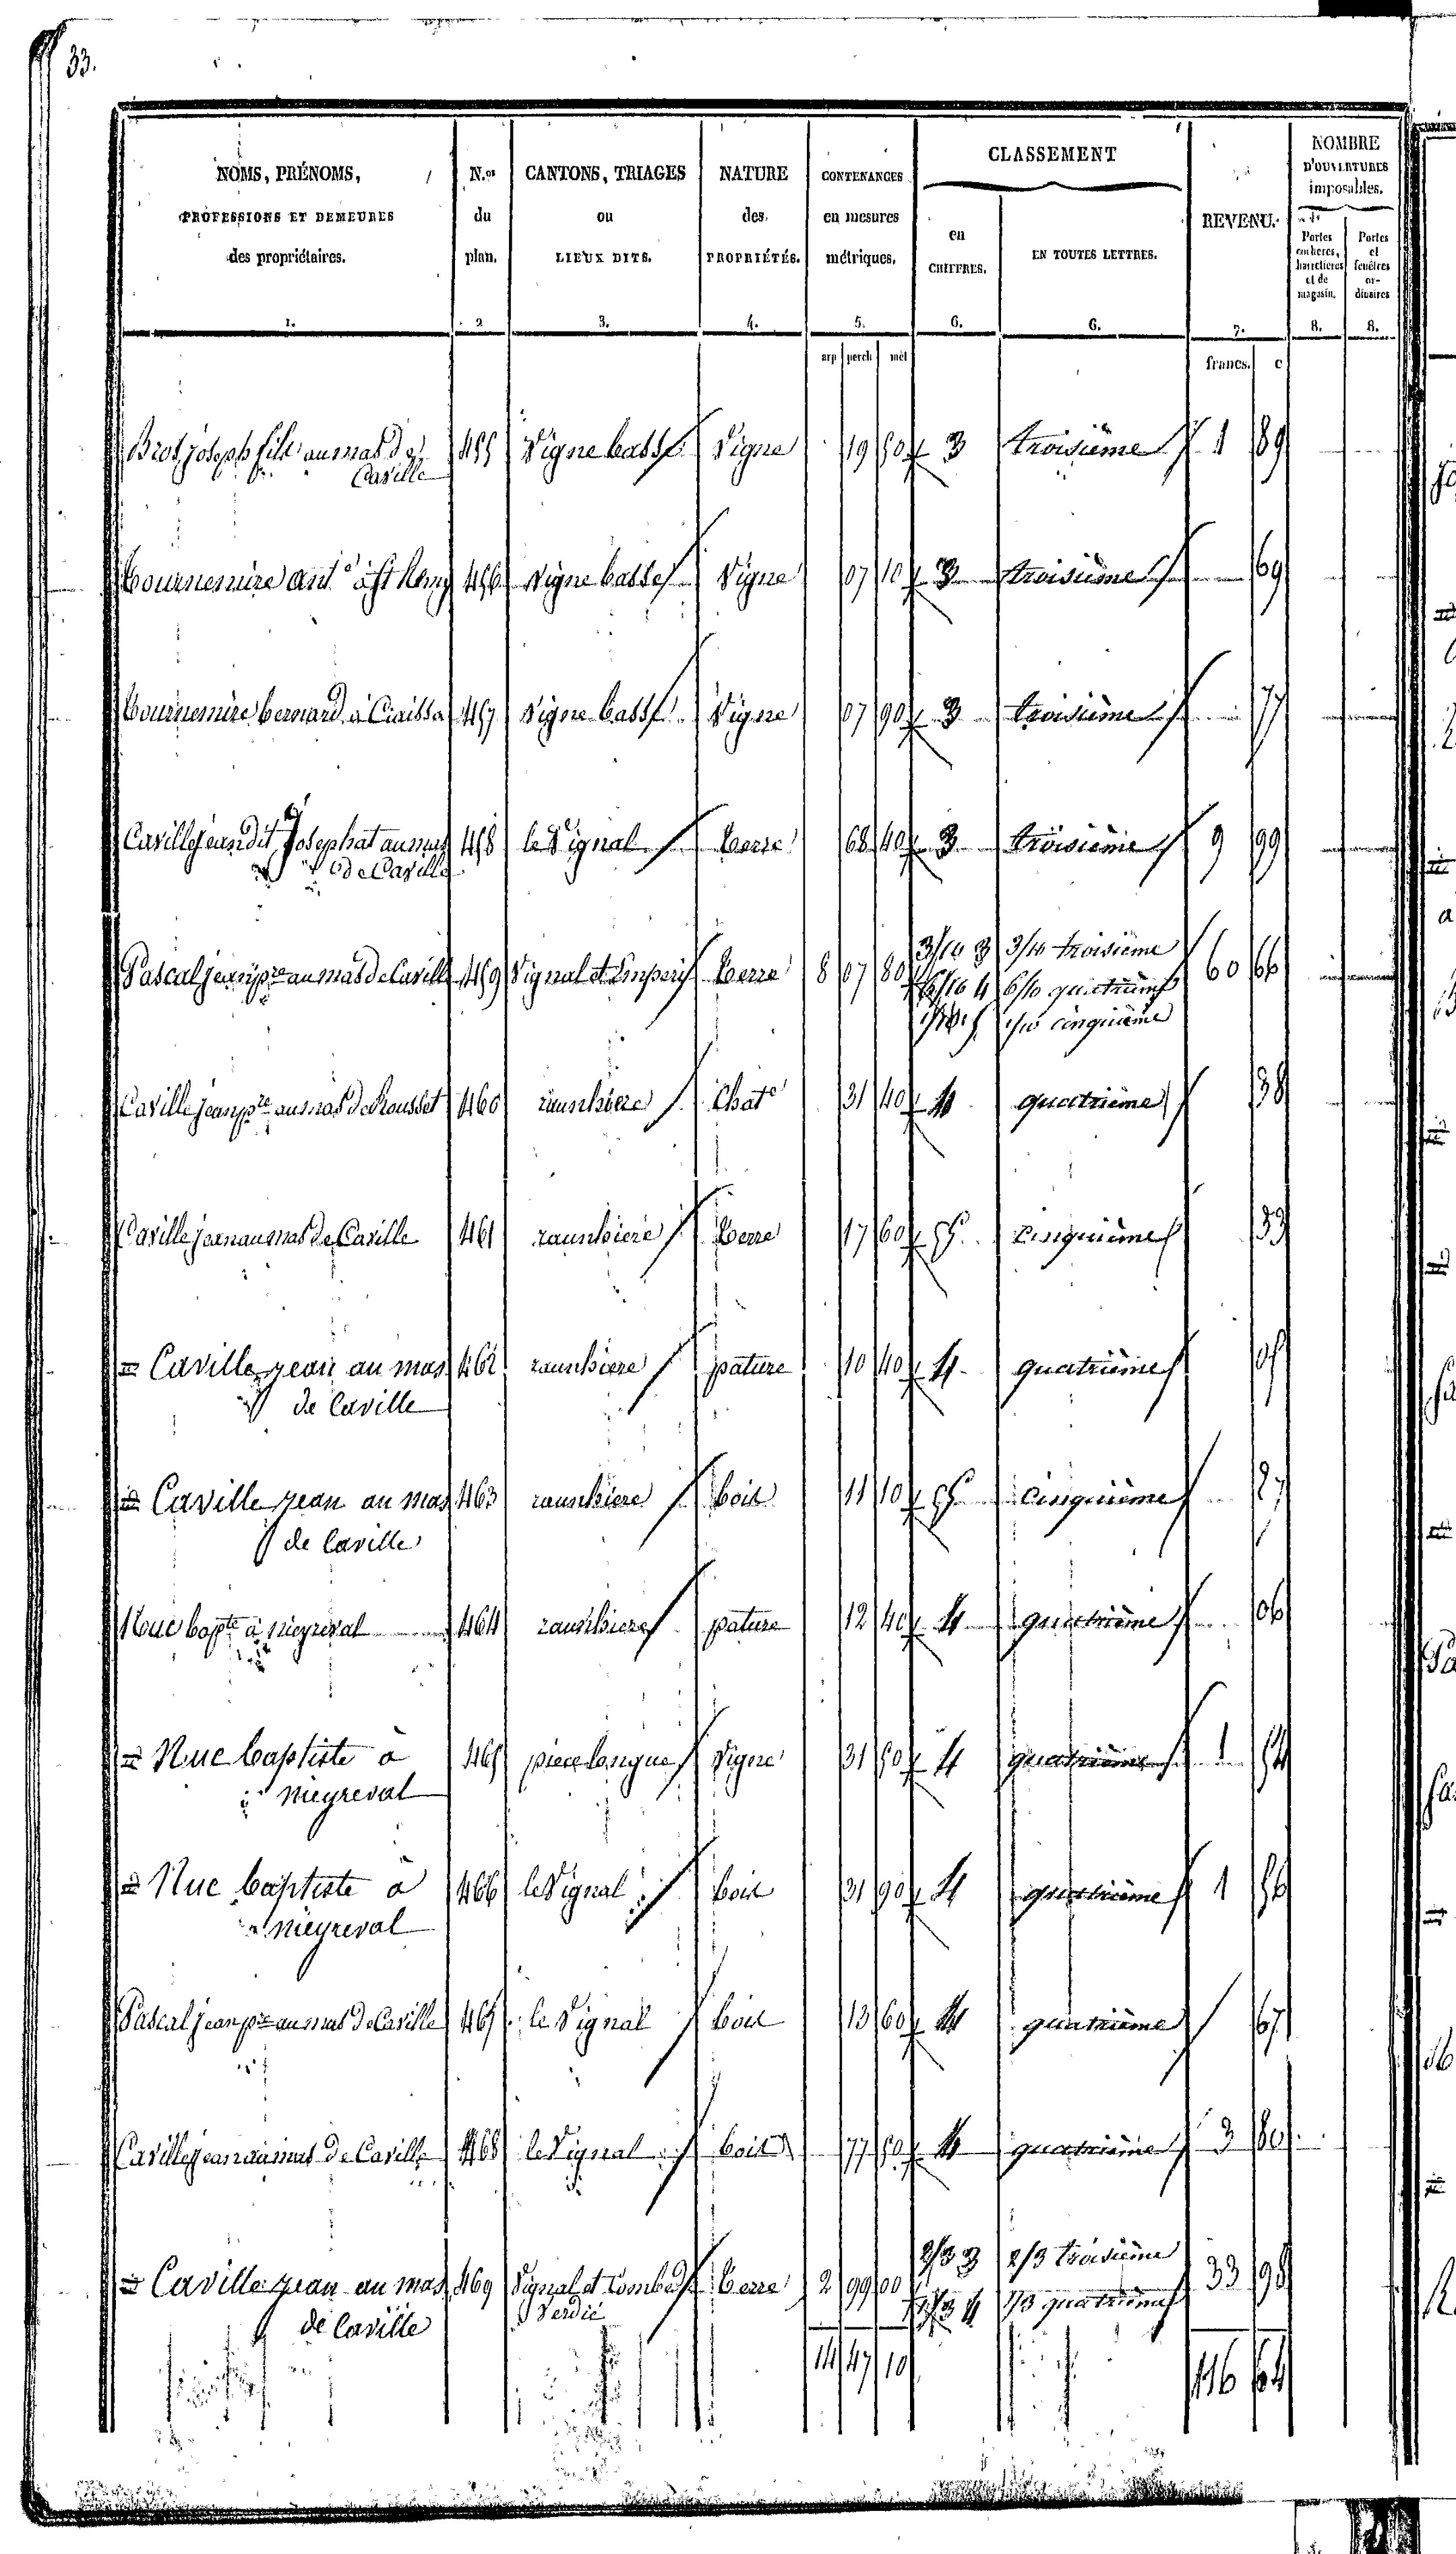 33.
NOMS, PRÉNOMS, PROFESSIONS ET DEMEURES des propriétaires. 1.
N.os du plan. 2
CANTONS, TRIAGES ou LIEUX DITS. 3.
NATURE des PROPRIÉTÉS. 4.
CONTENANCES en mesures métriques. 5.
CLASSEMENT
en CHIFFRES. 6.
EN TOUTES LETTRES. 6.
REVENU. 7.
NOMBRE D'OUVERTURES imposables.
Portes cochères, charretières et de magasin. 8.
Portes et fenêtres ordinaires 8.
arp perch mèt francs. c
Brot joseph fils au mas de 455 Vigne basse Vigne 19 50 3 troisième 1 89
Caville
Tournemire ant.e à St Remy 456 Vigne basse Vigne 07 10 3 troisième 69
Tournemire bernard à 457 Vigne basse Vigne 07 90 3 troisième 77
Caville jean dit Josephat au mas 458 le Vignal terre 68 40 3 troisième 9 99
de Caville
Pascal jean pre au mas de Caville 459 Vignal et terre 8 07 80 3/10 3 3/10 troisième 60 66
6/10 4 6/10 quatrième
1/10 5 1/10 cinquième
Caville jean pre au mas de Rousset 460 Chate 31 40 4 quatrième 38
Caville jean au mas de Caville 461 terre 17 60 5 cinquième 33
= Caville jean au mas 462 pature 10 40 4 quatrième 05
de Caville
= Caville jean au mas 463 bois 11 10 5 cinquième 27
de Caville
Nuc bapte à nieyreval 464 pature 12 40 4 quatrième 06
= Nuc baptiste à 465 piece longue Vigne 31 50 4 quatrième 1 54
nieyreval
= Nuc baptiste à 466 le Vignal bois 31 90 4 quatrième 1 56
nieyreval
Pascal jean pre au mas de Caville 467 le Vignal bois 13 60 4 quatrième 67
Caville jean au mas de Caville 468 le Vignal bois 77 50 4 quatrième 3 80
= Caville jean au mas 469 Vignal et Combe terre 2 99 00 2/3 3 2/3 troisième 33 98
de Caville Verdié 1/3 4 1/3 quatrième
14 47 10 116 64